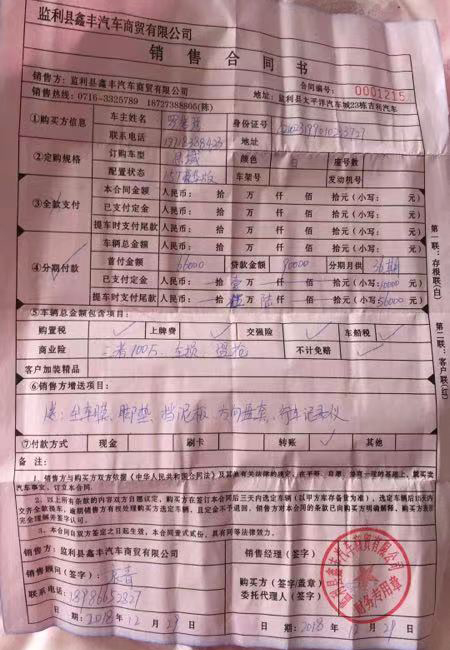 监利县鑫丰汽车商贸有限公司
销售合同书
销售方：监利县鑫丰汽车商贸有限公司 合同编号：0001215
销售热线：0716-3325789 18727388805(陈) 地址：监利县太平洋汽车城23栋吉利汽车
①购买方信息 车主姓名 身份证号
联系电话 地址
②定购规格 订购车型 颜色 白 座号数
配置状态 车架号 发动机号
③全款支付 本合同金额 人民币： 拾 万 仟 佰 拾元(小写： 元)
已支付定金 人民币： 拾 万 仟 佰 拾元(小写： 元)
提车时支付尾款 人民币： 拾 万 仟 佰 拾元(小写： 元)
④分期付款 车辆总金额 人民币： 拾 万 仟 佰 拾元(小写： 元)
首付金额 66000 贷款金额 90000 分期月供 36期
已支付定金 人民币： 拾 壹 万 仟 佰 拾元(小写：10000 元)
提车时支付尾款 人民币： 拾 伍 万 陆 仟 佰 拾元(小写：56000 元)
⑤本车辆总金额包含项目：
购置税 ✓ 上牌费 ✓ 交强险 ✓ 车船税 ✓
商业险 三者100万、车损、盗抢 不计免赔 ✓
客户加装精品
⑥销售方增送项目：
送：全车膜、脚垫、挡泥板、方向盘套、行车记录仪
⑦付款方式 现金 刷卡 转账 ✓ 其他
备注：
1、销售方与购买方双方依据《中华人民共和国合同法》及其他有关法律的规定，在平等、自愿、协商一致的基础上，就买卖
汽车事宜，订立本合同。
2、以上所有条款的内容双方自愿议定，购买方在签订本合同后三天内选定车辆(以甲方库存备量为准)，选定车辆后15天内
3、本合同自双方签定之日起生效，本合同壹式贰份，具有同等法律效力。
销售方：监利县鑫丰汽车商贸有限公司 销售经理(签字)
销售顾问(签字)： 购买方(签字/盖章)
联系电话： 委托代理人(签字)
日期：2018年12月29日 日期：2018年12月29日
第一联：存根联(白)
第二联：客户联(红)
监利县鑫丰汽车商贸有限公司
财务专用章